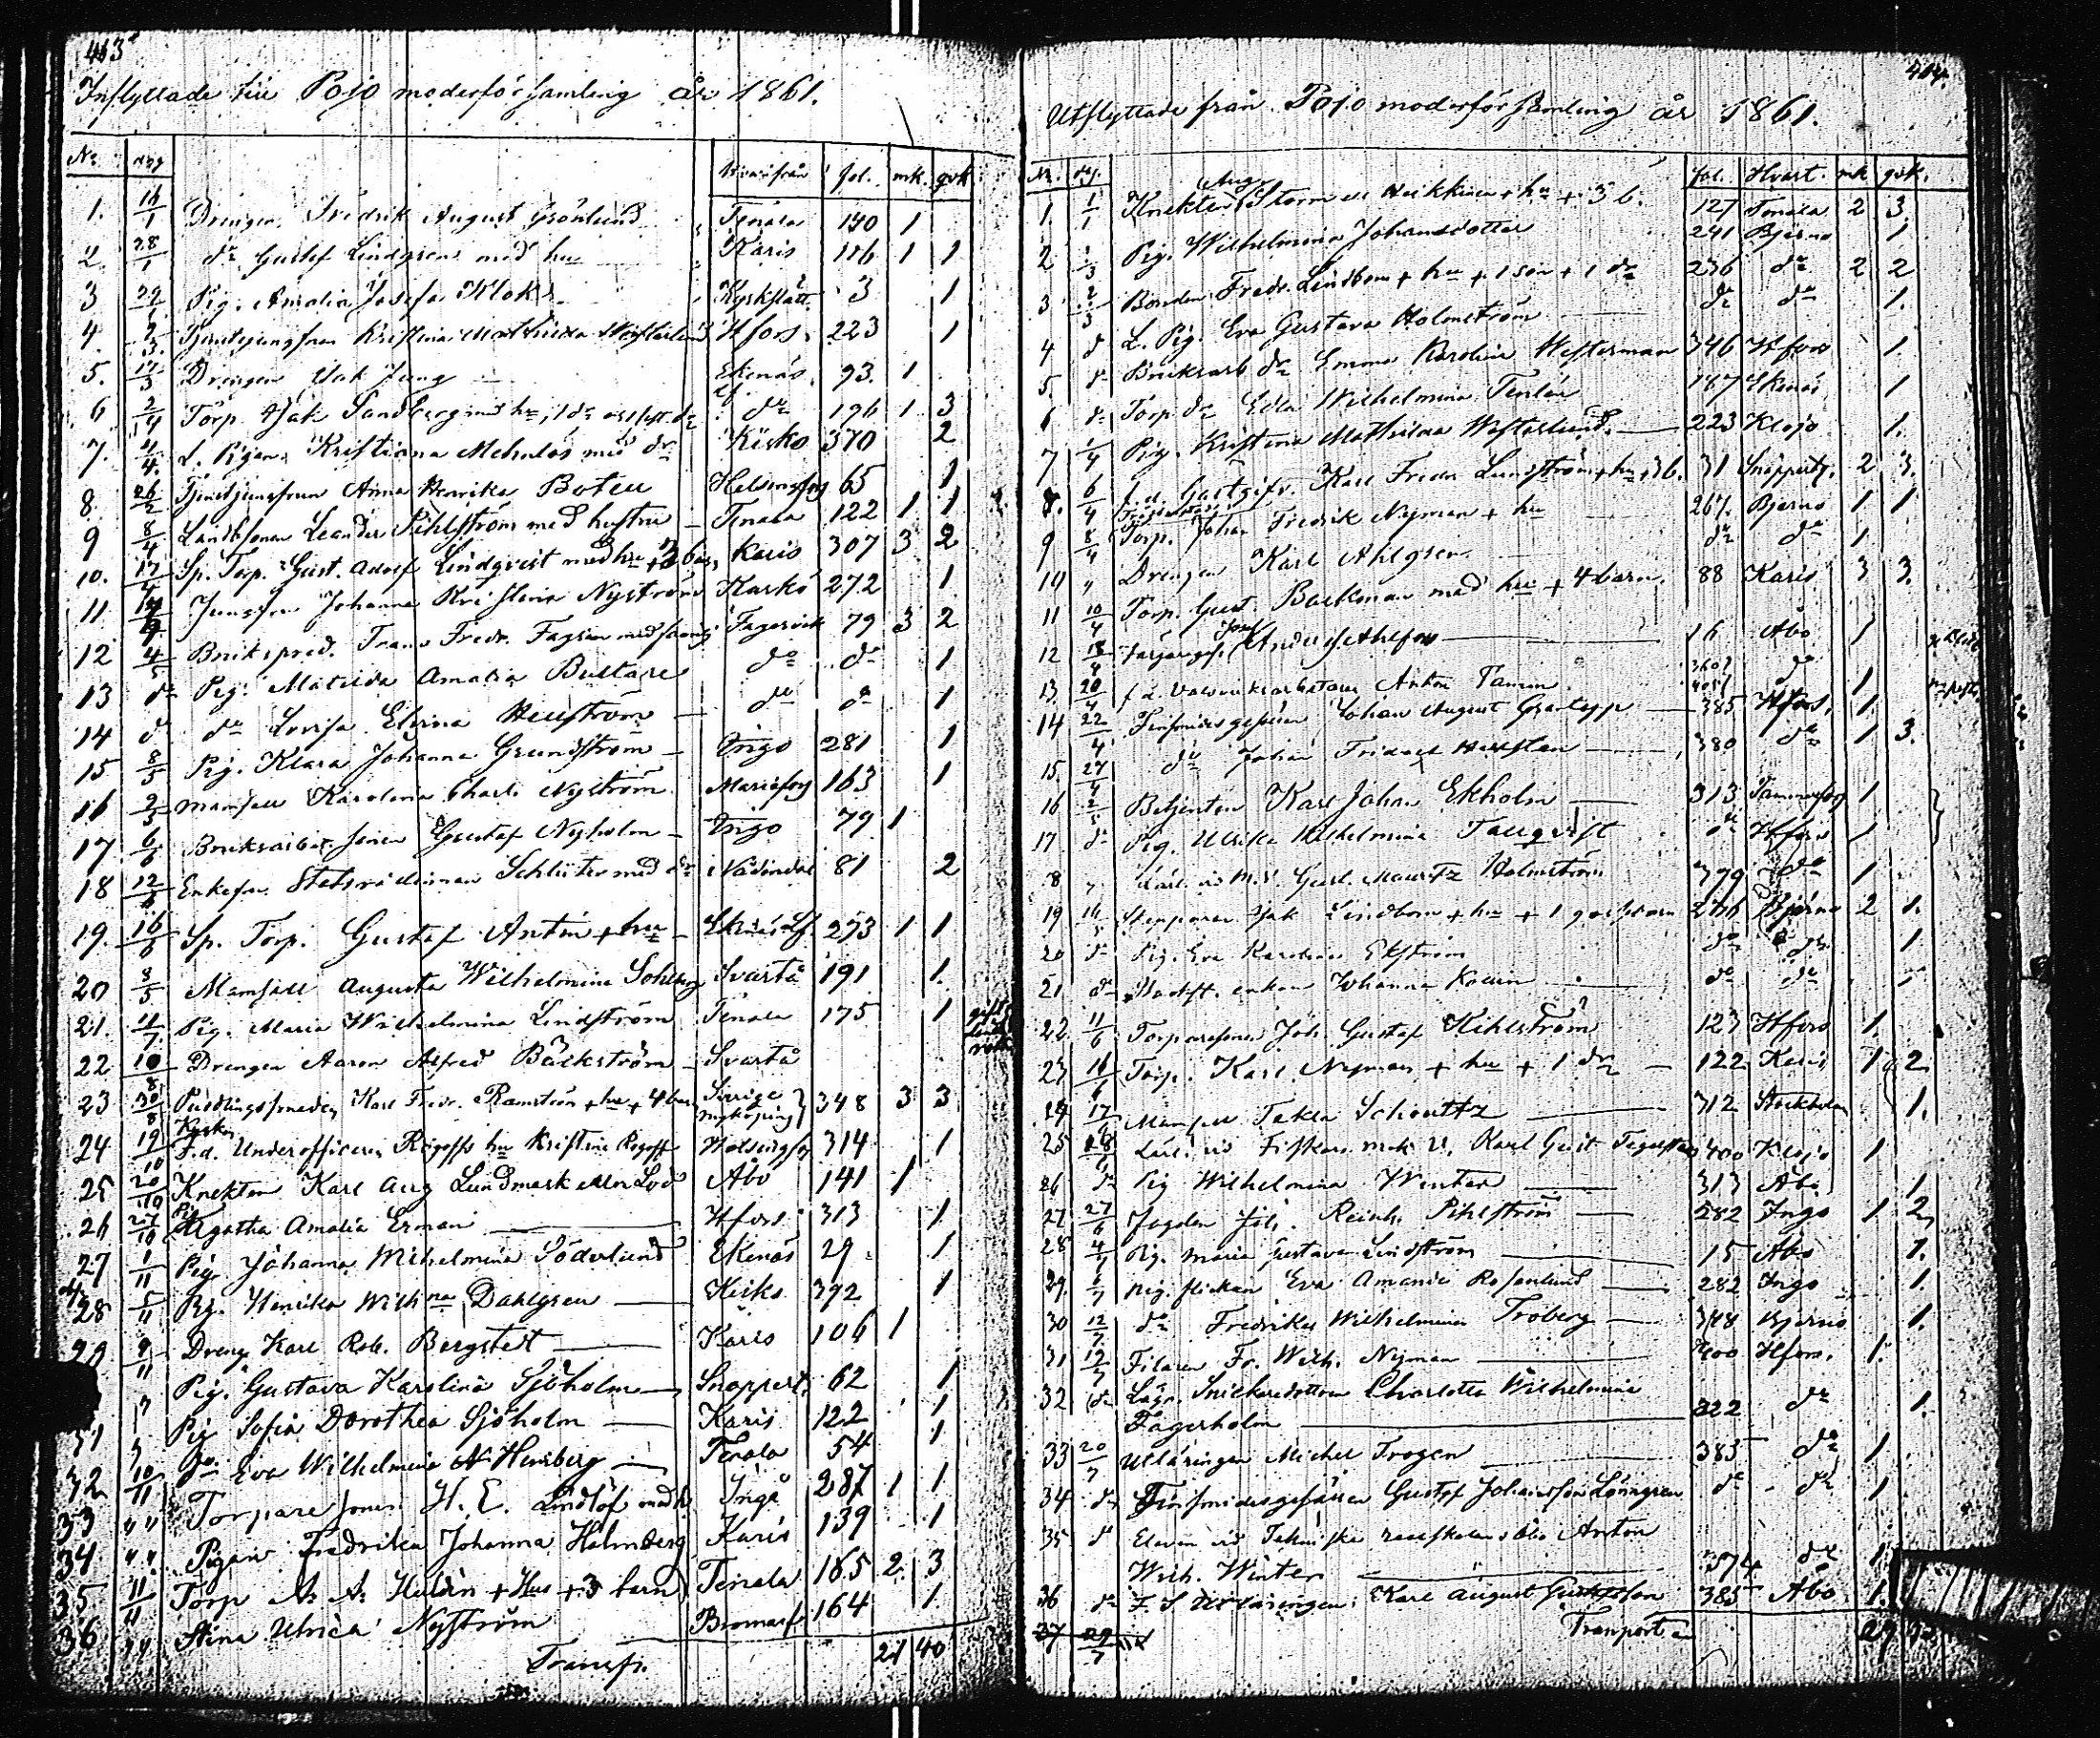 463
Inflyttade till Pojo moderförsamling år 1861.
No dag Hvarifrån fol. mk. qvk.
1. 16/1 Drengen Fredrik August Grönlund Tenala 140 1
2. 28/1 do Gustaf Lindgren med hu Karis 116 1 1
3 29/1 Pig. Amalia Josefa Klok Kyrkslätt 3 1
4. Tjenstejungfrun Kristina Mathilda Westerlund Hfors 223 1
5. 17/3 Drengen Isak Jung Ekenäs 93. 1
6 2/4 Torp. Isak Sandberg med hu, 1 dr do 196 1 3
7. 4/4. L. Pigan Kristiana Mehnlös med dr Kisko 370 2
8. 26/2 Tjenstejungfrun Anna Henrika Boteus Helsingfors 65 1
9 8/4 Landbsonen Leander Pihlström med hustru Tenala 122 1 1
10. 17/4 Sp. Torp. Gust. Adolf Lindqvist med hu + 3 barn Karis 307 3 2
11 Jungfru Johanna Kristina Nyström Karkö 272 1
12 4/5 Bruksprèd. Frans Fredr. Fagrén med familj Fagervik 79 3 2
13 do Pig. Matilda Amalia Bustare do do 1
14 d do Lovisa Elvina Hellström do do 1
15 8/5 Pig. Klara Johanna Grundström Ingo 281 1
16 2/3 Mamsell Karolina Charl. Nyström Mariefors 163 1
17 6/6 Bruksarbet. sonen Gustaf Nyholm Ingo 79 1
18 12/6 Enkefru Statsrådinnan Schlüter med dr Nådendal 81 2
19. 16/6 Sp. Torp. Gustaf Antin + hu Ekenäs Lf. 273 1 1
20 8/5 Mamsell Augusta Wilhelmina Sohlberg Svartå 191 1.
21. 11/7. Pig. Maria Wilhelmina Lindström Tenala 175 1
22 10/8 Drengen Aaron Alfred Bäckström Svartå
23 30/8 Puddlingssmeden Karl Fredr. Ramström + hu + 4 barn Sverige Nyköping 348 3 3
24 19/10 F.d. Underofficeren Rigoffs hu Kristina Rigoff Helsingfors 314 1
25 20/10 Knekten Karl Aug Lundmark eller Lod Åbo 141 1
26 27/10 Pig Agatha Amalia Erman Hfors. 313 1
27 1/11 Pig. Johanna Wilhelmina Söderlund Ekenäs 29. 1
28 5/11 Pig. Henrika Wilhna Dahlgren Kisko 392 1
29 9/11 Dreng Karl Rob. Bergstedt Karis 106 1
Pig. Gustava Karolina Sjöholm Snappert. 62 1
31 Pig Sofia Dorothea Sjöholm Karis 122 1
32 10/11 Do Eva Wilhelmina Hensberg Tenala 54 1
33 " " Torparesonen H. E. Lindlöf med h Ingå 287 1 1
34 " " Pigan Fredrika Johanna Holmberg Karis 139 1
35 11/11 Torp A. A. Huldin + Hu + 3 barn Tenala 165 2. 3
36 " " Stina Ulrica Nyström Bromarf 164 1
Transp. 21 40
464.
Utflyttade från Pojo moderförsamling år 1861.
No. dag. fol. Hvart. mk qvk.
1. 1/1 Knekten Aug. Storm el Heikkinen + hu + 3 b. 127 Tenala 2 3
2 1/3 Pig. Wilhelmina Johansdotter 241 Bjerno 1
3 2/3 Bonden Fredr. Lindbom + hu + 1 son + 1 dr 236 do 2 2
4 d L. Pig. Eva Gustava Holmström do do 1.
5. do Bruksarb dr Emma Karolina Westerman 346 Hfors 1.
6 do Torp. dr Edla Wilhelmina Tenlén 187 Ekenäs 1
7 1/4 Pig. Kristina Mathilda Westerlund. 223 Klojo 1.
8. 6/4 f.d. Gästgifv. Karl Fredr Lundström + hu + 3 b. 31 Snappertu. 2 3.
9 8/4 Torp. Johan Fredrik Nyman + hu 267. Bjerno 1 1
10 " Drengen Karl Ahlgren do do 1
11 10/4 Torp. Gust. Backman med hu + 4 barn. 88 Karis 3 3.
12 18/4 Färgareges. Josef Anders Ahlfors 16 Åbo 1
13. 20/4 f.d. Valsverksarbetaren Anton Tamm do 1
14 22/4 Finsmidesgesällen Johan August Grantapp 385 Hfors. 1.
15. 27/4 do Johan Fridolf Hellsten 380 do 1 3.
16 2/5 Betjenten Karl Johan Ekholm 313 Tammerfors 1
17 do Pig. Ulrika Wilhelmina Tallqvist do Hfors 1
8 " Lärl. vid M.V. Gust. Mauritz Holmström 379 do 1
19 Stenparen Isak Lindbom + hu + 1 gossebarn 236 Bjerno 2 1.
20 do Pig. Eva Karolina Ekström do do 1
21 do Backst. enkan Johanna Kovin do do 1
22 11/6 Torparesonen Joh. Gustaf Kihlström 123 Hfors 1.
23 16/6 Torp. Karl Nyman + hu + 1 dr 122 Karis 1 2
24 17/6 Mamsell Tekla Schoultz 312 Stockholm 1.
25 Lärl. vid Fiskars mek. V. Karl Gust Tegelsten 400 Klojo 1
26 do Pig Wilhelmina Winter 313 Åbo 1
27 27/6 Fogden Joh. Reinh. Pihlström 282 Ingo 1 2
28 4/7 Pig. Maria Gustava Lindström 15 Åbo 1.
29. 6/7 Pig. flickan Eva Amanda Rosenlund 282 Ingo 1.
30 12/7 do Fredrika Wilhelmina Troberg 348 Bjerno 1.
31 19/7 Filaren Fr. Wilh. Nyman 400 Hfors. 1.
32 do Lägn. Snickaredottern Charlotta Wilhelmina
Fagerholm 322 do 1.
33 20/7 Utläringen Michel Trogen 383 do 1
34 do Finsmidesgesällen Gustaf Johansson Lönngren do do 1
35. d Eleven vid Tekniska realskolan i Åbo Anton
Wilh. Winter 374 do 1.
36 do F. S. Utläringen Karl August Gustafsson 385 Åbo 1.
37 29/7 Transport 29